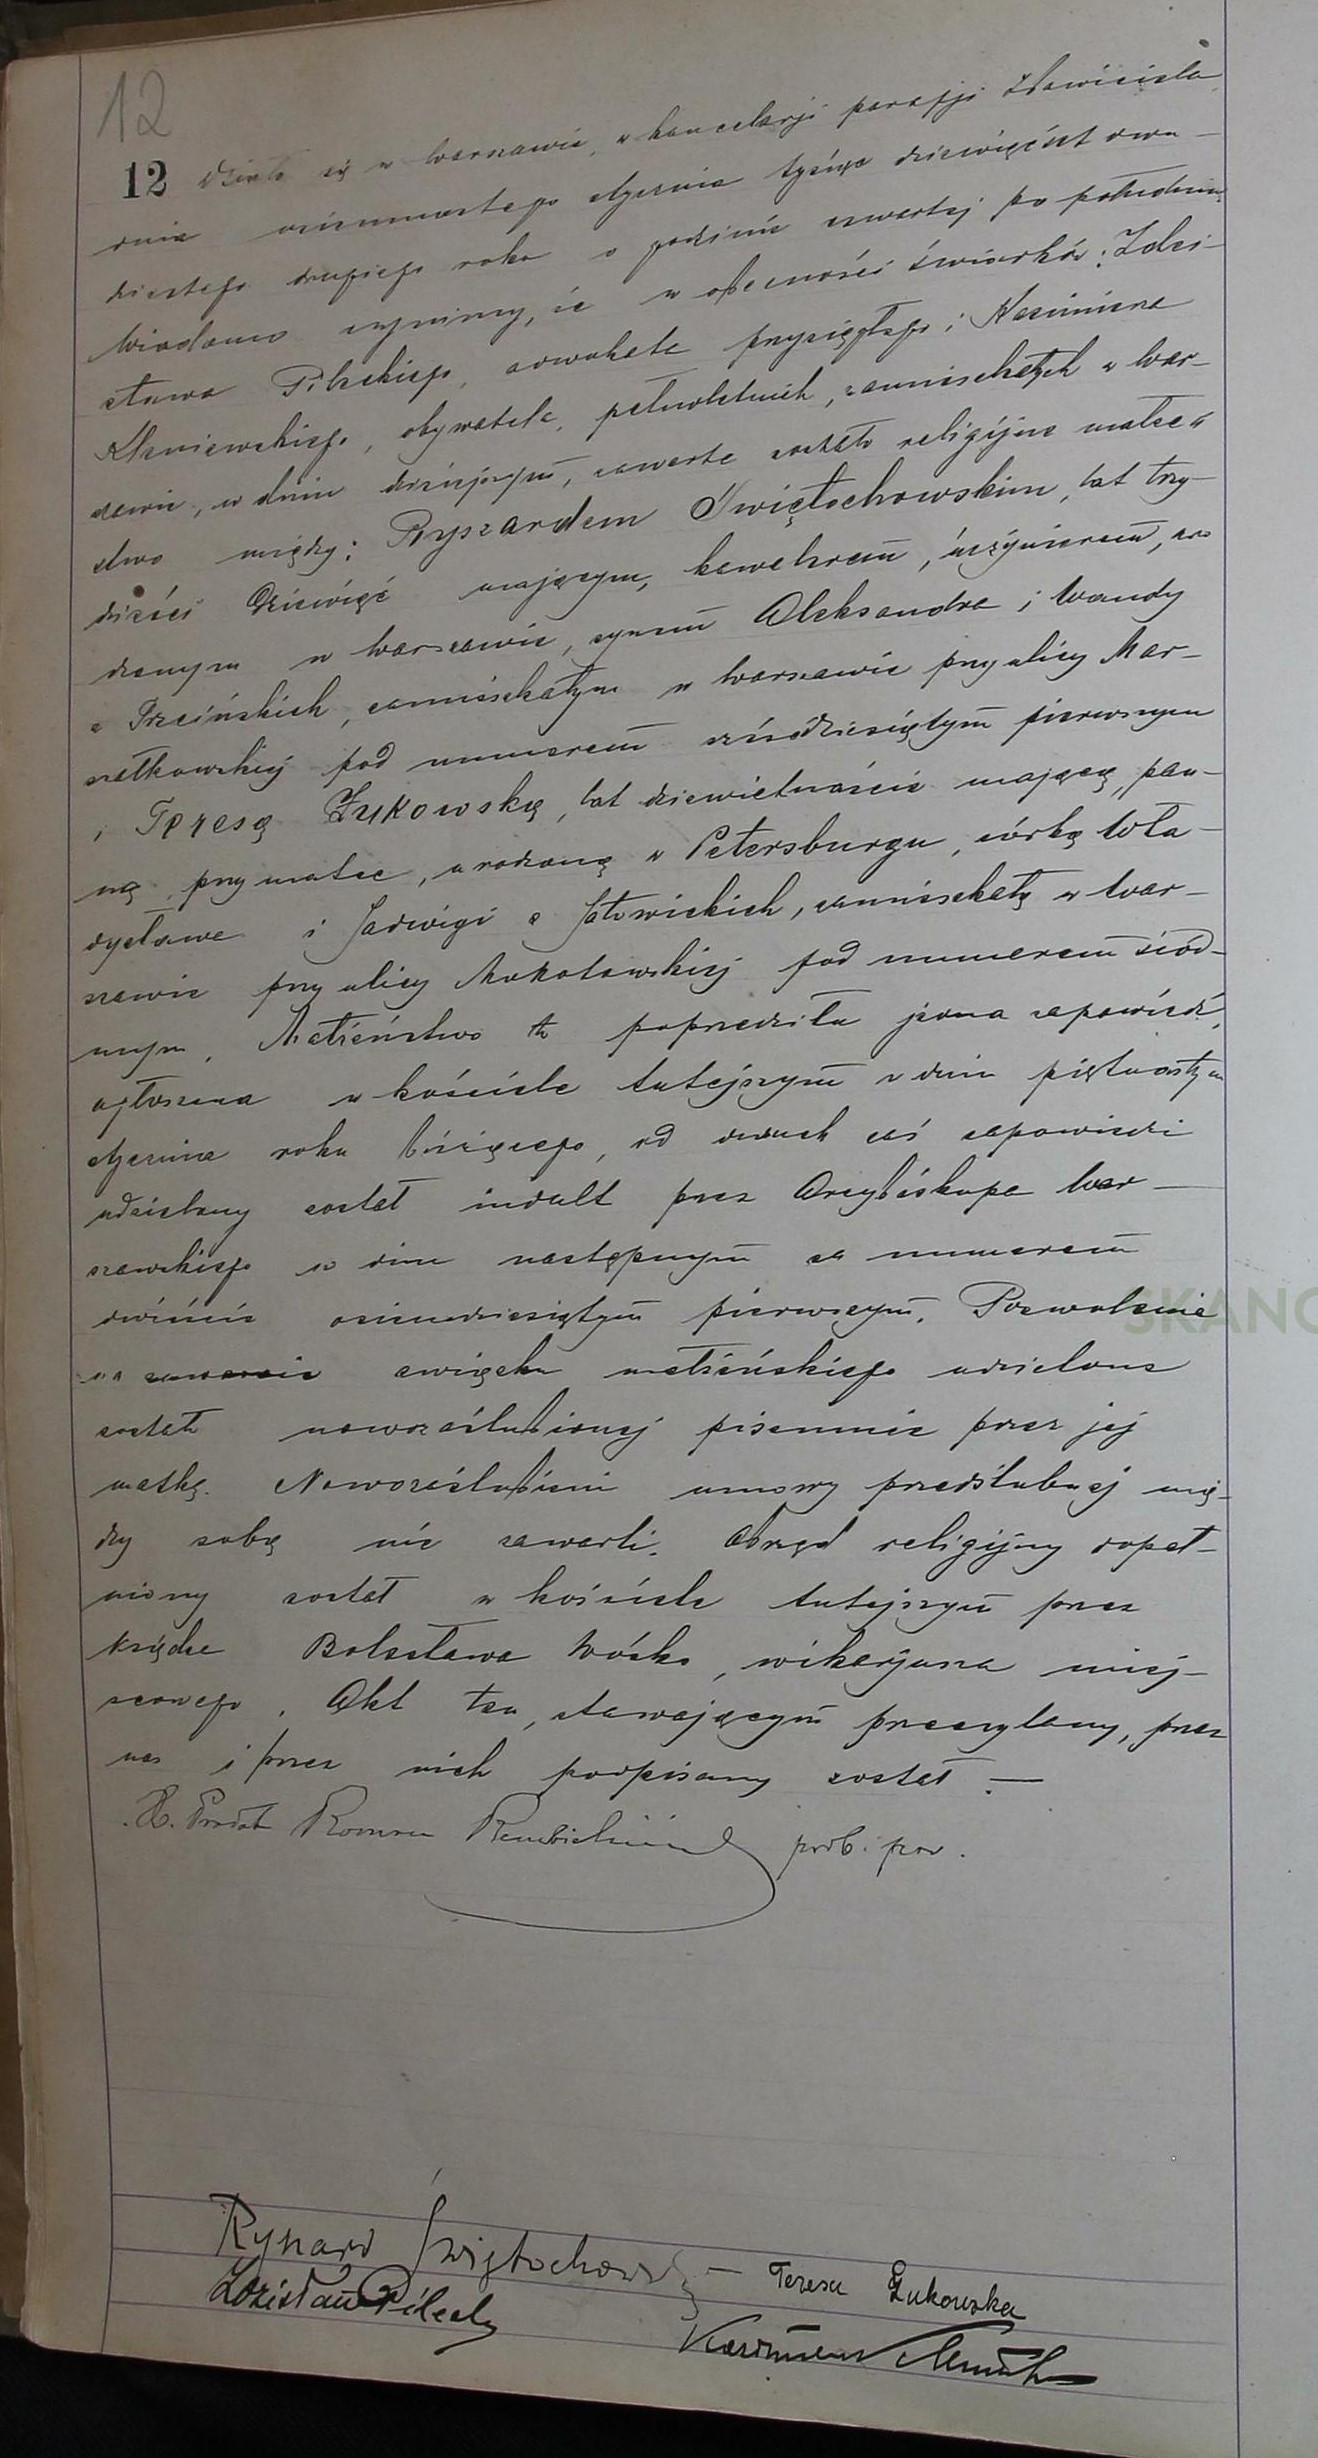 12
12 Działo się w Warszawie, w kancelarji parafji Zbawiciela
dnia osiemnastego stycznia tysiąc dziewięćset dwu-
dziestego drugiego roku o godzinie czwartej po południu.
Wiadomo czynimy, że w obecności świadków: Zdzi-
sława Pileckiego, adwokata przysięgłego i Kazimierza
Kleniewskiego, obywatela, pełnoletnich, zamieszkałych w War-
szawie, w dniu dzisiejszym, zawarte zostało religijne małżeń
stwo między: Ryszardem Świętochowskim, lat trzy-
dzieści dziewięć mającym, kawalerem, inżynierem, uro
dzonym w Warszawie, synem Aleksandra i Wandy
z Trzcińskich, zamieszkałym w Warszawie przy ulicy Mar-
szałkowskiej pod numerem sześćdziesiątym pierwszym
i Teresą Żukowską, lat dziewietnaście mającą, pan-
ną, przy matce, urodzoną w Petersburgu, córką Wła-
dysława i Jadwigi z Jałowickich, zamieszkałą w War-
szawie przy ulicy Mokotowskiej pod numerem siód-
mym. Małżeństwo to poprzedziła jedna zapowiedź,
ogłoszona w kościele tutejszym w dniu piętnastym
stycznia roku bieżącego, od dwóch zaś zapowiedzi
udzielony został indult przez Arcybiskupa War-
szawskiego w dniu następnym za numerem
dwieście osiemdziesiątym pierwszym. Pozwolenie
na zawarcie związku małżeńskiego udzielone
zostało nowozaślubionej pisemnie przez jej
matkę. Nowozaślubieni umowy przedślubnej mię-
dzy sobą nie zawarli. Obrzęd religijny dopeł-
niony został w kościele tutejszym przez
księdza Bolesława Wóśko, wikarjusza miej-
scowego. Akt ten, stawającym przeczytany, przez
nas i przez nich podpisany został. —
X. Prałat Roman Rembieliński prob. par.
Ryszard Świętochowski — Teresa Żukowska
Zdzisław Pilecki
Kazimierz